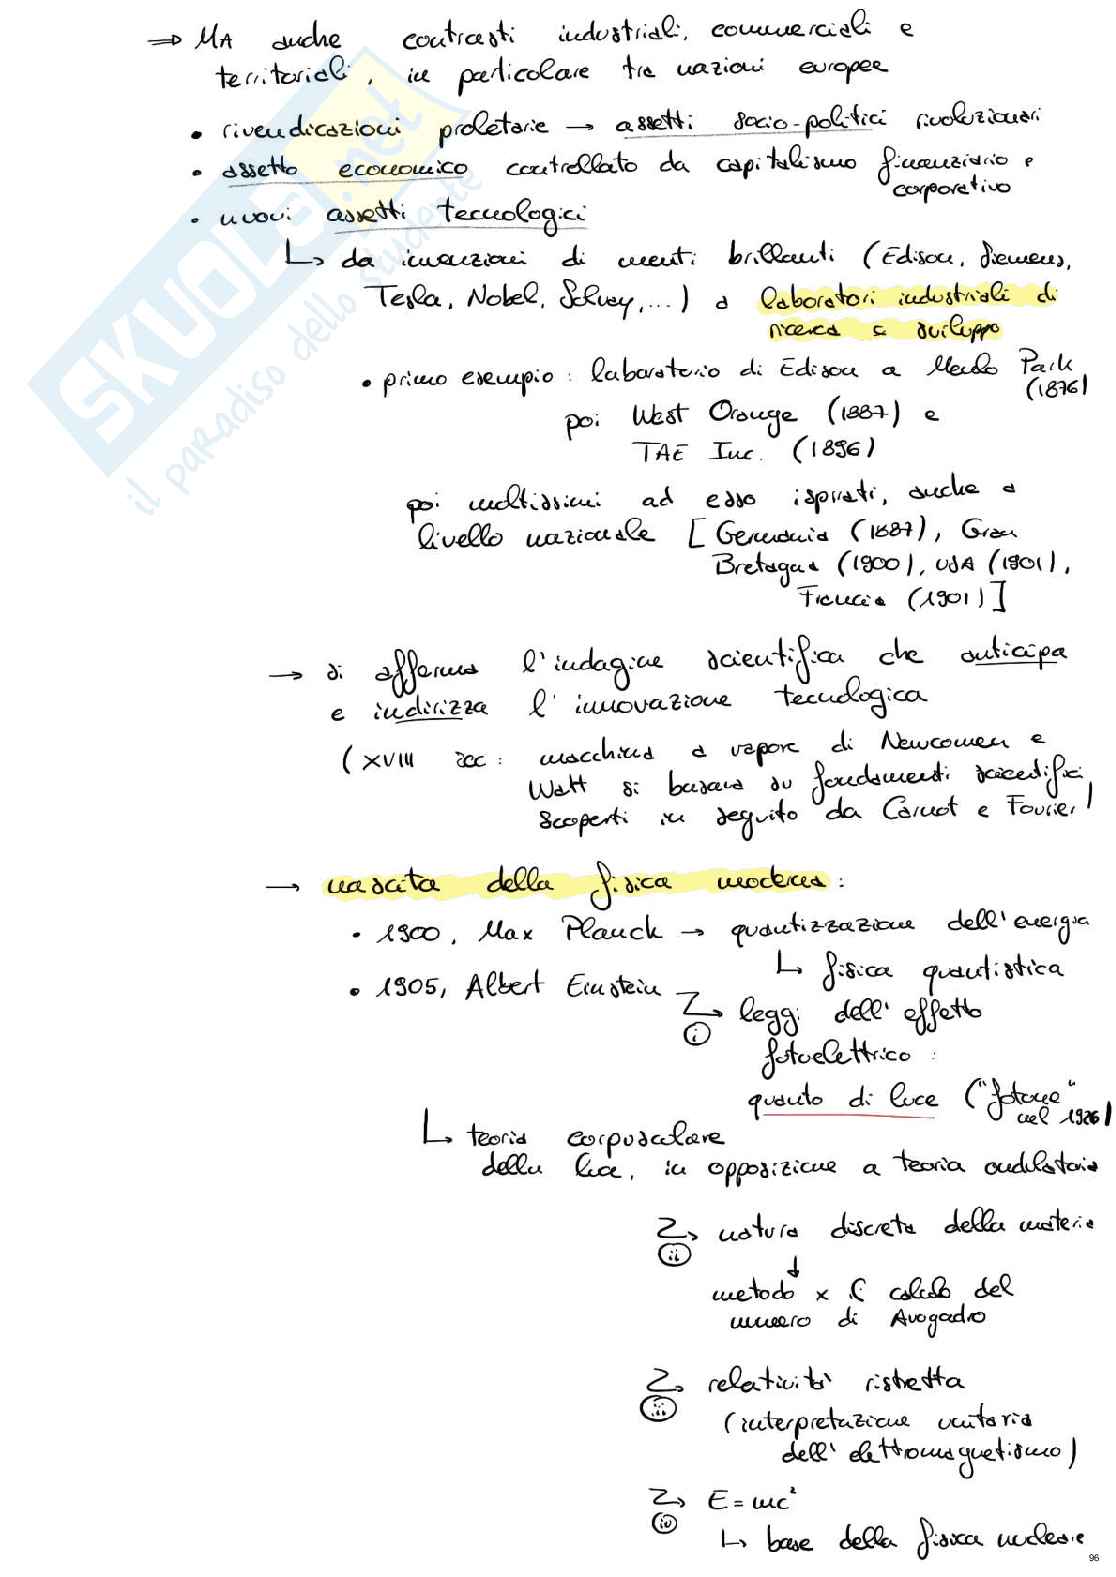 ⇒ MA anche contrasti industriali, commerciali e
territoriali, in particolare tra nazioni europee
• rivendicazioni proletarie → assetti socio-politici rivoluzionari
• assetto economico controllato da capitalismo finanziario e
corporativo
• nuovi assetti tecnologici
↳ da invenzioni di menti brillanti (Edison, Siemens,
Tesla, Nobel, Solvay, ...) a laboratori industriali di
ricerca e sviluppo
• primo esempio: laboratorio di Edison a Menlo Park
(1876)
poi West Orange (1887) e
TAE Inc. (1896)
poi moltissimi ad esso ispirati, anche a
livello nazionale [Germania (1887), Gran
Bretagna (1900), USA (1901),
Francia (1901)]
→ si afferma l'indagine scientifica che anticipa
e indirizza l'innovazione tecnologica
(XVIII sec: macchina a vapore di Newcomen e
Watt si basava su fondamenti scientifici
scoperti in seguito da Carnot e Fourier)
→ nascita della fisica moderna:
• 1900, Max Planck → quantizzazione dell'energia
↳ fisica quantistica
• 1905, Albert Einstein
i → leggi dell'effetto
fotoelettrico:
quanto di luce ("fotone"
nel 1926)
↳ teoria corpuscolare
della luce, in opposizione a teoria ondulatoria
ii → natura discreta della materia
↓
metodo x il calcolo del
numero di Avogadro
iii → relatività ristretta
(interpretazione unitaria
dell'elettromagnetismo)
iv → E = mc²
↳ base della fisica nucleare
96
SKUOLA.net
il paradiso dello studente